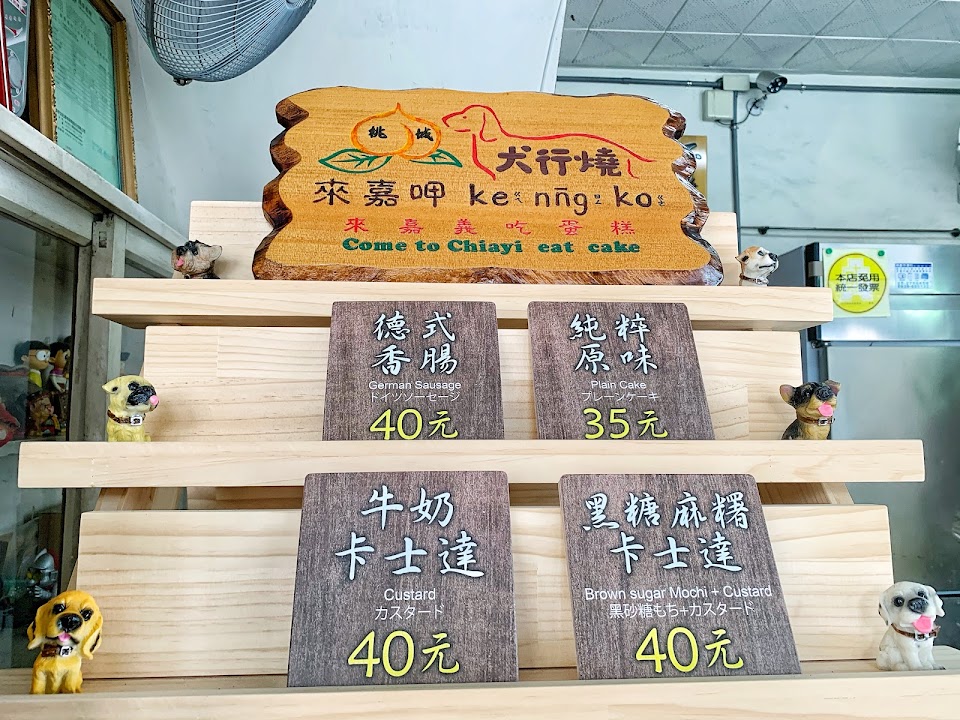 桃城
犬行燒
來嘉呷 keㄎㄟ nn̄gㄋㄥ koㄍㄜ
來嘉義吃蛋糕
Come to Chiayi eat cake
本店免用
統一發票
德式
香腸
German Sausage
ドイツソーセージ
40元
純粹
原味
Plain Cake
プレーンケーキ
35元
牛奶
卡士達
Custard
カスタード
40元
黑糖麻糬
卡士達
Brown sugar Mochi + Custard
黒砂糖もち+カスタード
40元